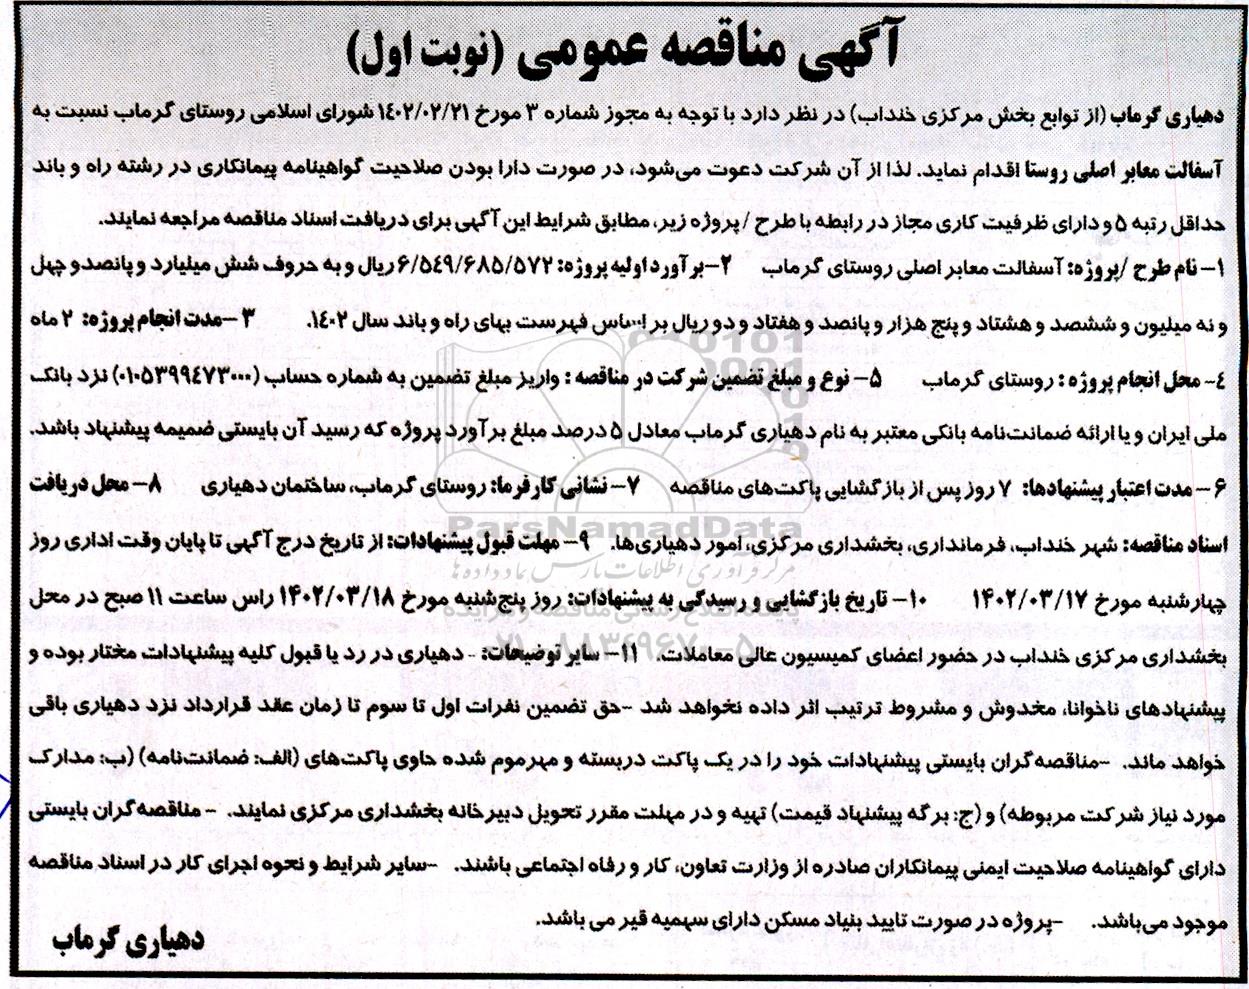 آگهی مناقصه عمومی (نوبت اول)
دهیاری گرماب (از توابع بخش مرکزی خنداب) در نظر دارد با توجه به مجوز شماره ۳ مورخ ۱۴۰۲/۰۲/۲۱ شورای اسلامی روستای گرماب نسبت به
آسفالت معابر اصلی روستا اقدام نماید. لذا از آن شرکت دعوت می‌شود، در صورت دارا بودن صلاحیت گواهینامه پیمانکاری در رشته راه و باند
حداقل رتبه ۵ و دارای ظرفیت کاری مجاز در رابطه با طرح / پروژه زیر، مطابق شرایط این آگهی برای دریافت اسناد مناقصه مراجعه نمایند.
۱- نام طرح /پروژه: آسفالت معابر اصلی روستای گرماب ۲-برآورد اولیه پروژه: ۶/۵۴۹/۶۸۵/۵۷۲ ریال و به حروف شش میلیارد و پانصدو چهل
و نه میلیون و ششصد و هشتاد و پنج هزار و پانصد و هفتاد و دو ریال بر اساس فهرست بهای راه و باند سال ۱۴۰۲. ۳ -مدت انجام پروژه: ۲ ماه
۴- محل انجام پروژه : روستای گرماب ۵- نوع و مبلغ تضمین شرکت در مناقصه : واریز مبلغ تضمین به شماره حساب (۰۱۰۵۳۹۹۴۷۳۰۰۰) نزد بانک
ملی ایران و یا ارائه ضمانت‌نامه بانکی معتبر به نام دهیاری گرماب معادل ۵ درصد مبلغ برآورد پروژه که رسید آن بایستی ضمیمه پیشنهاد باشد.
۶- مدت اعتبار پیشنهادها: ۷ روز پس از بازگشایی پاکت‌های مناقصه ۷- نشانی کارفرما: روستای گرماب، ساختمان دهیاری ۸- محل دریافت
اسناد مناقصه: شهر خنداب، فرمانداری، بخشداری مرکزی، امور دهیاری‌ها. ۹- مهلت قبول پیشنهادات: از تاریخ درج آگهی تا پایان وقت اداری روز
چهارشنبه مورخ ۱۴۰۲/۰۳/۱۷ ۱۰- تاریخ بازگشایی و رسیدگی به پیشنهادات: روز پنج‌شنبه مورخ ۱۴۰۲/۰۳/۱۸ راس ساعت ۱۱ صبح در محل
بخشداری مرکزی خنداب در حضور اعضای کمیسیون عالی معاملات. ۱۱- سایر توضیحات: - دهیاری در رد یا قبول کلیه پیشنهادات مختار بوده و
پیشنهادهای ناخوانا، مخدوش و مشروط ترتیب اثر داده نخواهد شد -حق تضمین نفرات اول تا سوم تا زمان عقد قرارداد نزد دهیاری باقی
خواهد ماند. -مناقصه‌گران بایستی پیشنهادات خود را در یک پاکت دربسته و مهرموم شده حاوی پاکت‌های (الف: ضمانت‌نامه) (ب: مدارک
مورد نیاز شرکت مربوطه) و (ج: برگه پیشنهاد قیمت) تهیه و در مهلت مقرر تحویل دبیرخانه بخشداری مرکزی نمایند. - مناقصه‌گران بایستی
دارای گواهینامه صلاحیت ایمنی پیمانکاران صادره از وزارت تعاون، کار و رفاه اجتماعی باشند. -سایر شرایط و نحوه اجرای کار در اسناد مناقصه
موجود می‌باشد. -پروژه در صورت تایید بنیاد مسکن دارای سهمیه قیر می باشد.
دهیاری گرماب
ParsNamadData
مرکز فرآوری اطلاعات پارس نماد داده ها